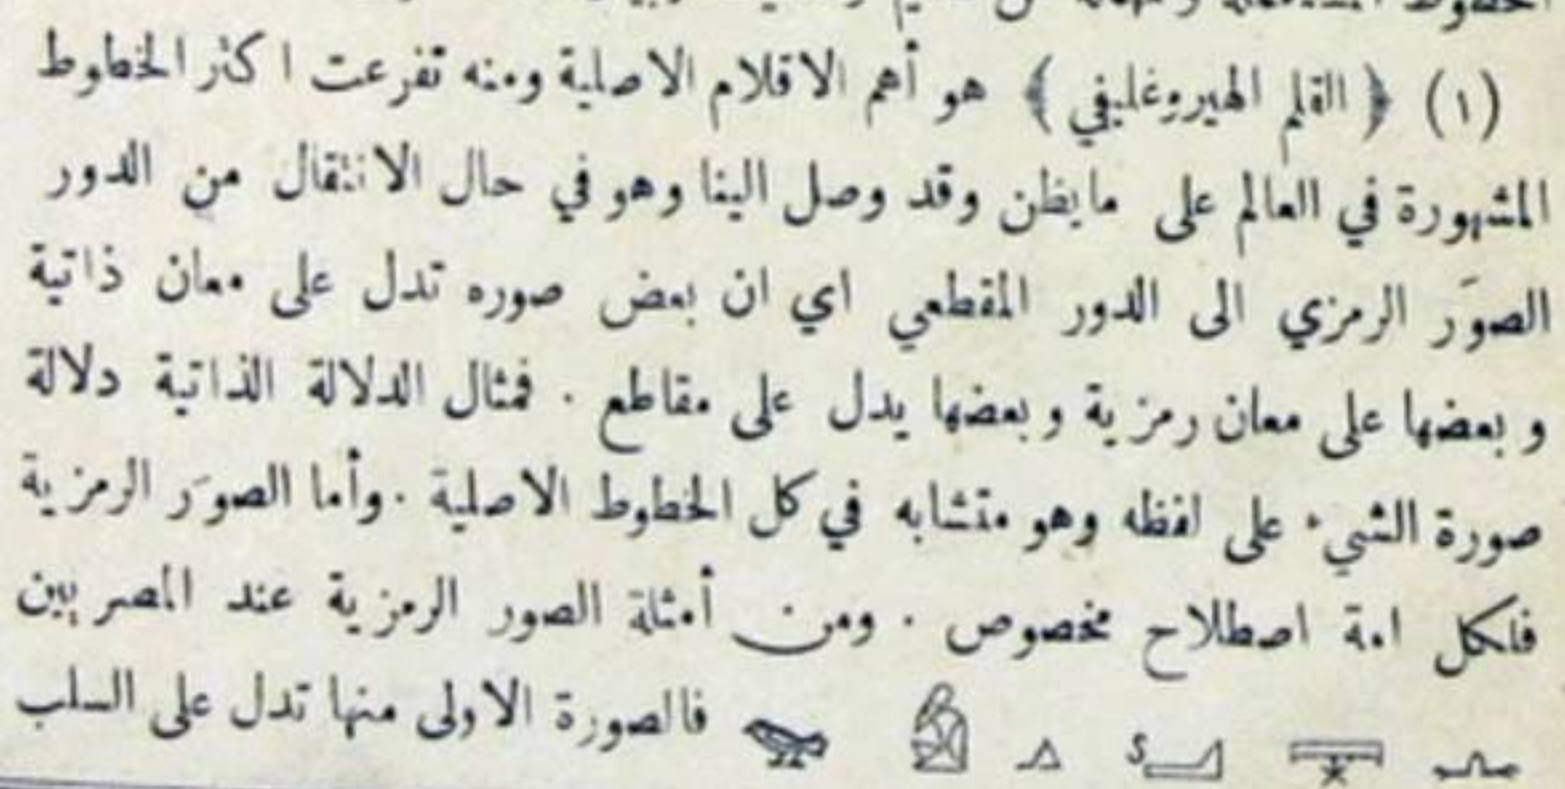 (١) ﴿ القلم الهيروغليفي ﴾ هو أهم الاقلام الاصلية ومنه تفرعت اكثر الخطوط
المشهورة في العالم على مايظن وقد وصل الينا وهو في حال الانتقال من الدور
الصوَر الرمزي الى الدور المقطعي اي ان بعض صوره تدل على معان ذاتية
وبعضها على معان رمزية وبعضها يدل على مقاطع . فمثال الدلالة الذاتية دلالة
صورة الشيء على لفظه وهو متشابه في كل الخطوط الاصلية . وأما الصوَر الرمزية
فلكل امة اصطلاح مخصوص . ومن أمثلة الصور الرمزية عند المصريين
فالصورة الاولى منها تدل على السلب